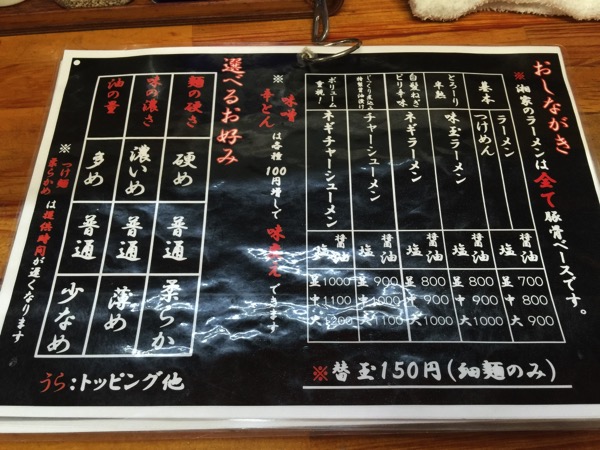 おしながき
※湘家のラーメンは全て豚骨ベースです。
基本
ラーメン
つけめん
醤油
塩
並 700
中 800
大 900
とろーり
半熟
味玉ラーメン
醤油
塩
並 800
中 900
大 1000
白髪ねぎ
ピリ辛味
ネギラーメン
醤油
塩
並 800
中 900
大 1000
じっくり煮込み
特製醤油漬け
チャーシューメン
醤油
塩
並 900
中 1000
大 1100
ボリューム
重視！
ネギチャーシューメン
醤油
塩
並 1000
中 1100
大 1200
※替玉150円(細麺のみ)
※味噌
辛とん
は各種100円増しで味変えできます
選べるお好み
麺の硬さ
硬め
普通
柔らか
味の濃さ
濃いめ
普通
薄め
油の量
多め
普通
少なめ
※つけ麺
柔らかめ
は提供時間が遅くなります
うら:トッピング他